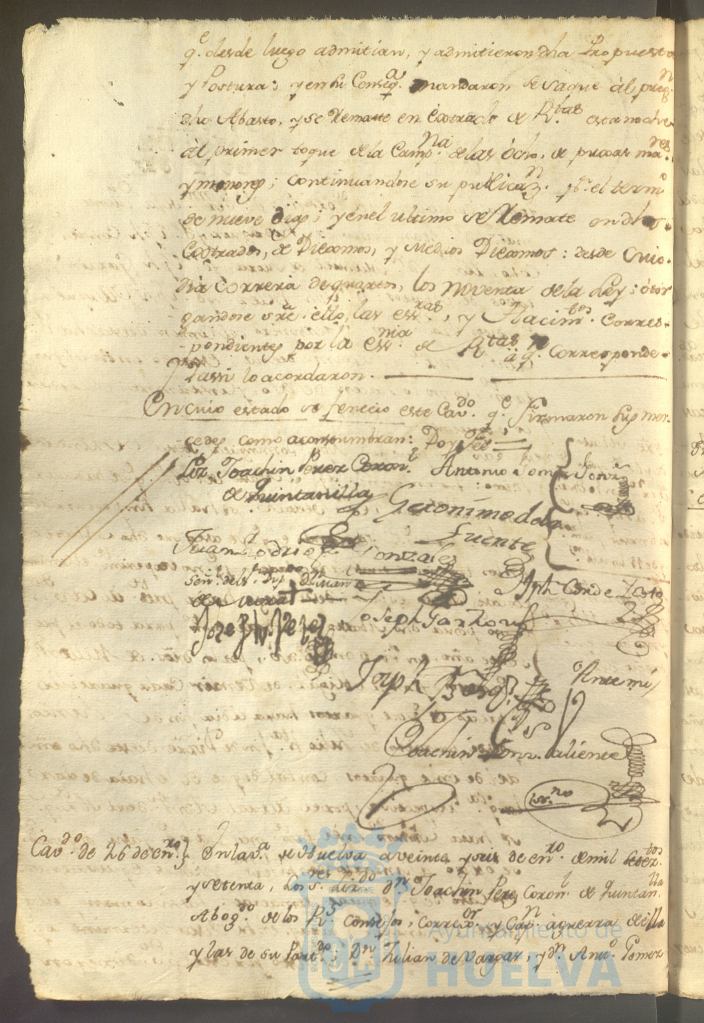 q.e desde luego admitian, y admitieron dha Propuesta
y Postura; y en su Conseq.a mandaron se saque al preg.n
dho Abasto, y se Remate en Contrado de R.tas esta noche
al primer toque de la Camp.na de las ocho, de pujas ma.res
y menores; continuandose su publicaz.n p.r el term.o
de nueve dias; y en el ultimo se Remate en dhos
de Diezmos, y Medios Diezmos: desde cuio
dia correrá de quarenta, los noventa de la Ley: otor
gandose sre. ello, las ess.ras, y Hacim.tos Corres-
pondientes por la ess.nia de R.tas a q.n Corresponde.
Y assi lo acordaron.
En cuio estado se fenecio este Cav.do q.e firmaron sus mer-
cedes como acostumbran: Doy fee
Liz.do Joachin Perez Coron.l Antonio
de Quintanilla
Geronimo de la
Fuente
Juan Gonzales
Jph Conde
Joseph Garrido
Joseph
Ante mi
Joachin Valiente
ss.no
Cav.do de 26 de en.ro} En la v.a de Huelva a veinte y seis de en.ro de mil setez.tos
y setenta, Los S.res Liz.do d.n Joachin Perez Coron.l de Quintan.lla
Abog.do de los R.s Consejos, Correx.or y Cap.n a guerra de ella
y las de su Part.do; D.n Julian de Vargas, y d.n Ant.o Gomez
Ayuntamiento de
HUELVA